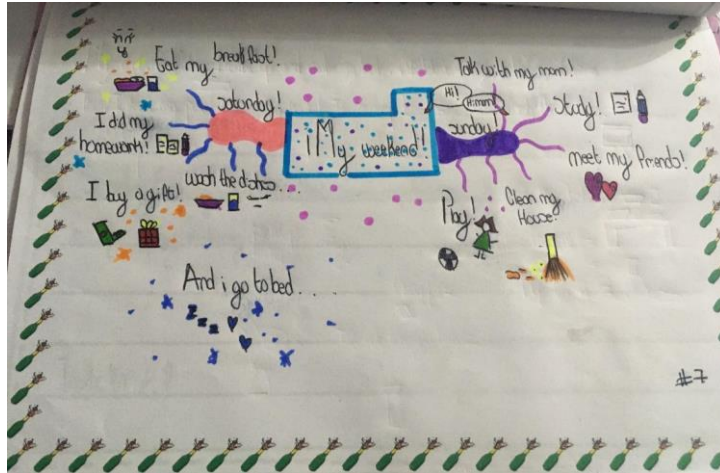 Eat my breakfast!
Saturday!
I did my
homework!
I buy a gift!
wash the dishes...
¡My weekend!!
Talk with my mom!
Hi!
Sunday!
Study!
meet my friends!
Play!
Clean my
House!
And i go to bed....
zzz
#7